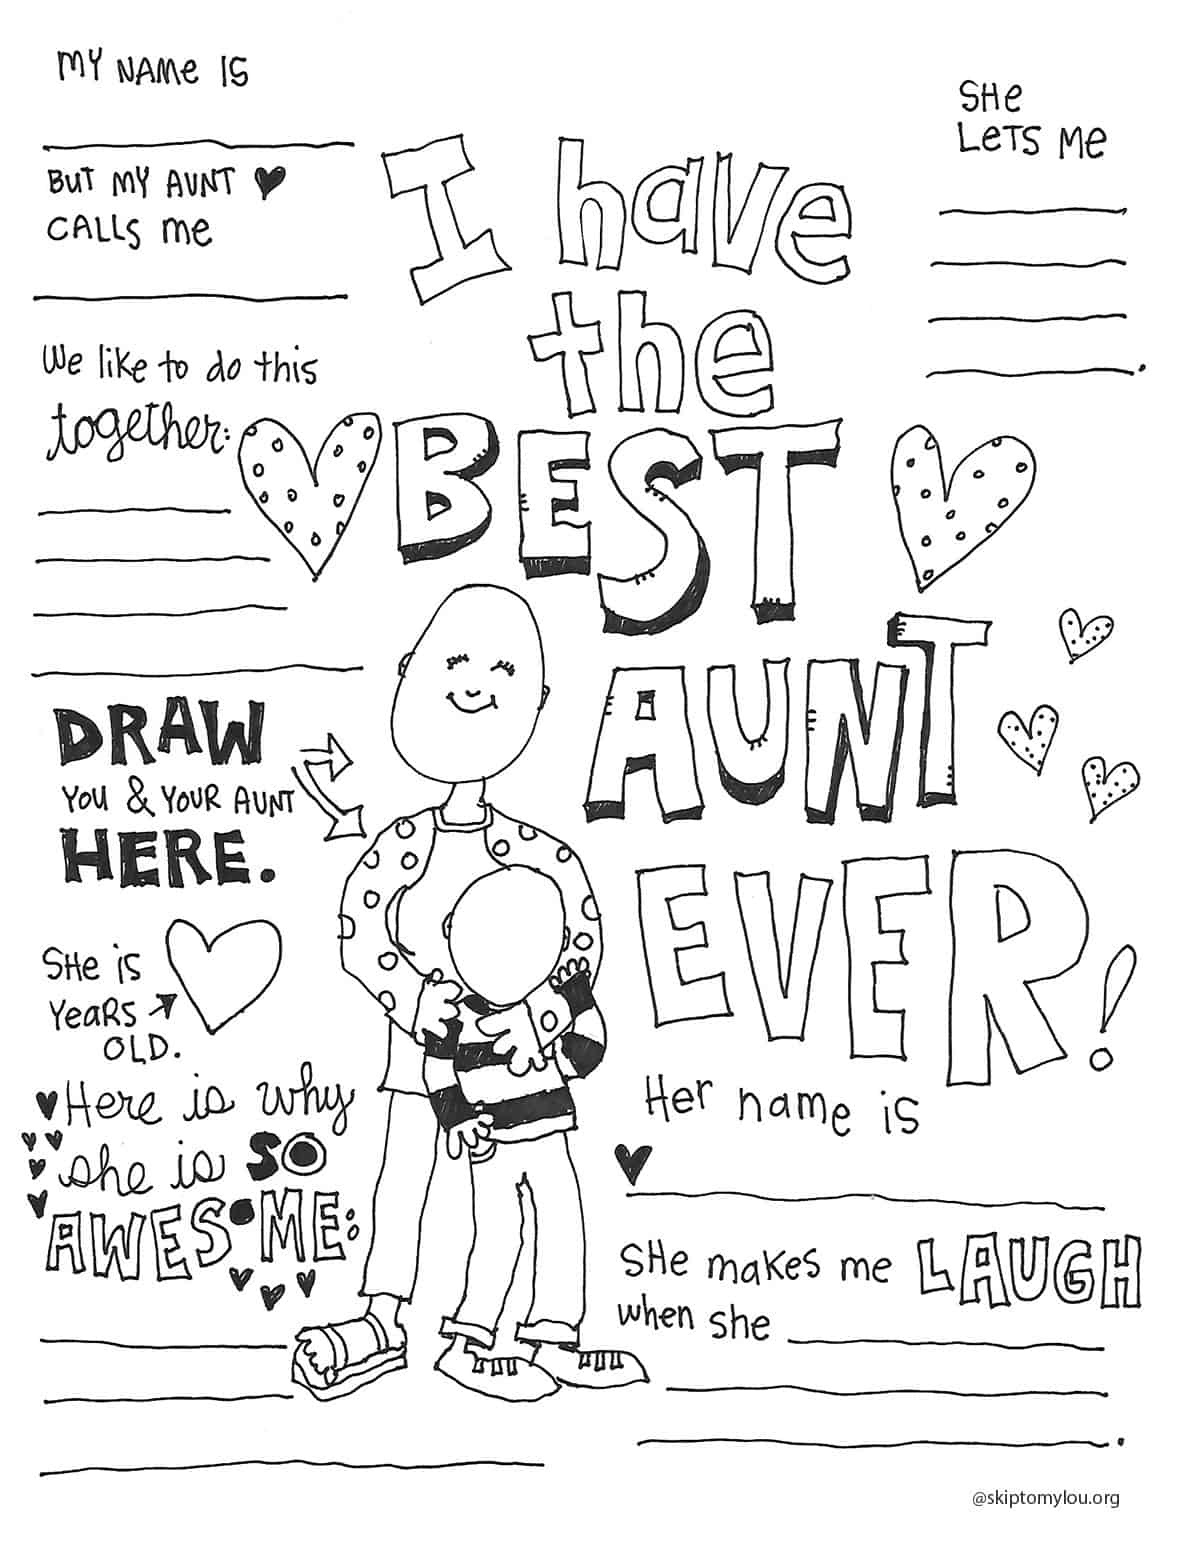 MY NAMe IS
BUT MY AUNT
CALLS Me
We like to do this
together:
SHe
LeTS Me
I have
the
BEST
AUNT
EVER!
DRAW
YOU & YOUR AUNT
HERE.
SHe iS
YeaRS
OLD.
Here is why
she is SO
AWESOME:
Her name is
SHe makes me LAUGH
when she
@skiptomylou.org